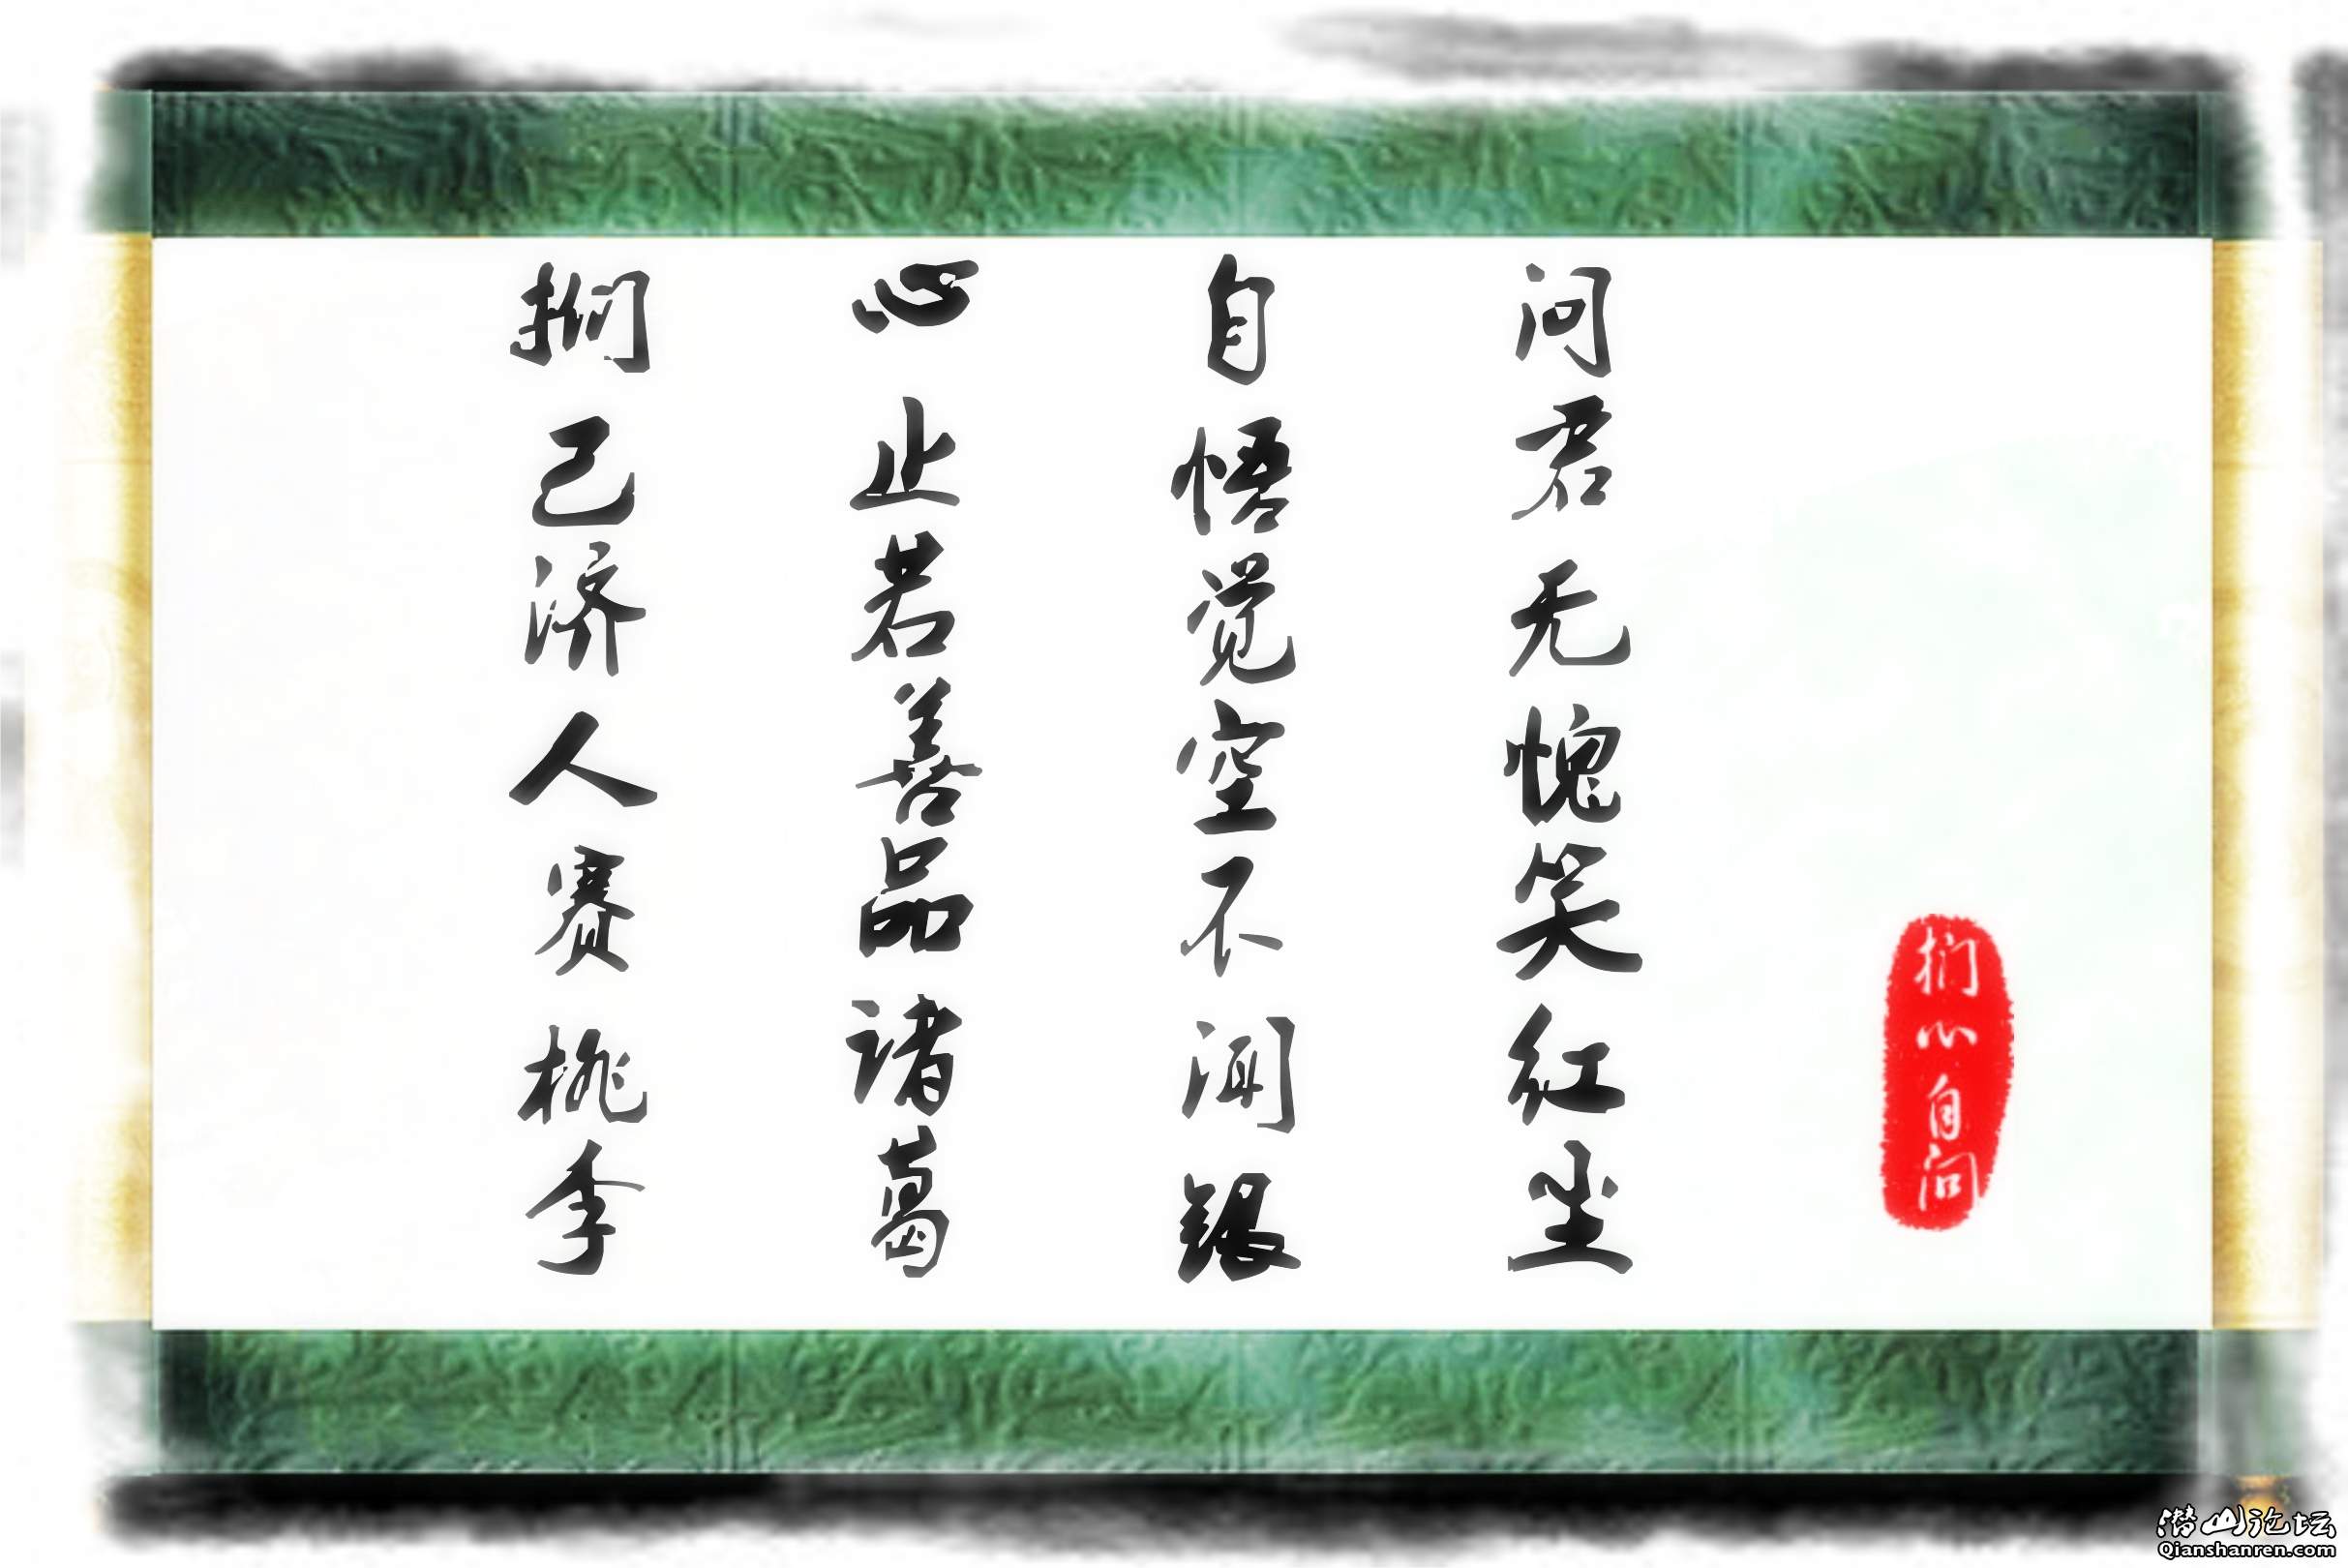 捫己济人赛桃李
心止若善品诸葛
自悟觉空不闻银
问君无愧笑红尘
扪心自问
潜山论坛
Qianshanren.com